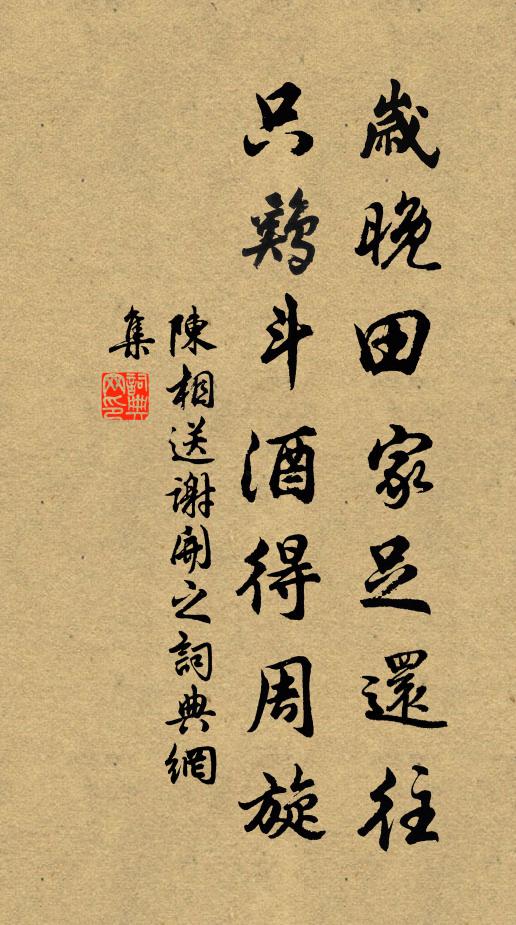 歲晚田家足還往
只鷄斗酒得周旋
陳相送謝開之詞典網
集
詞典網印